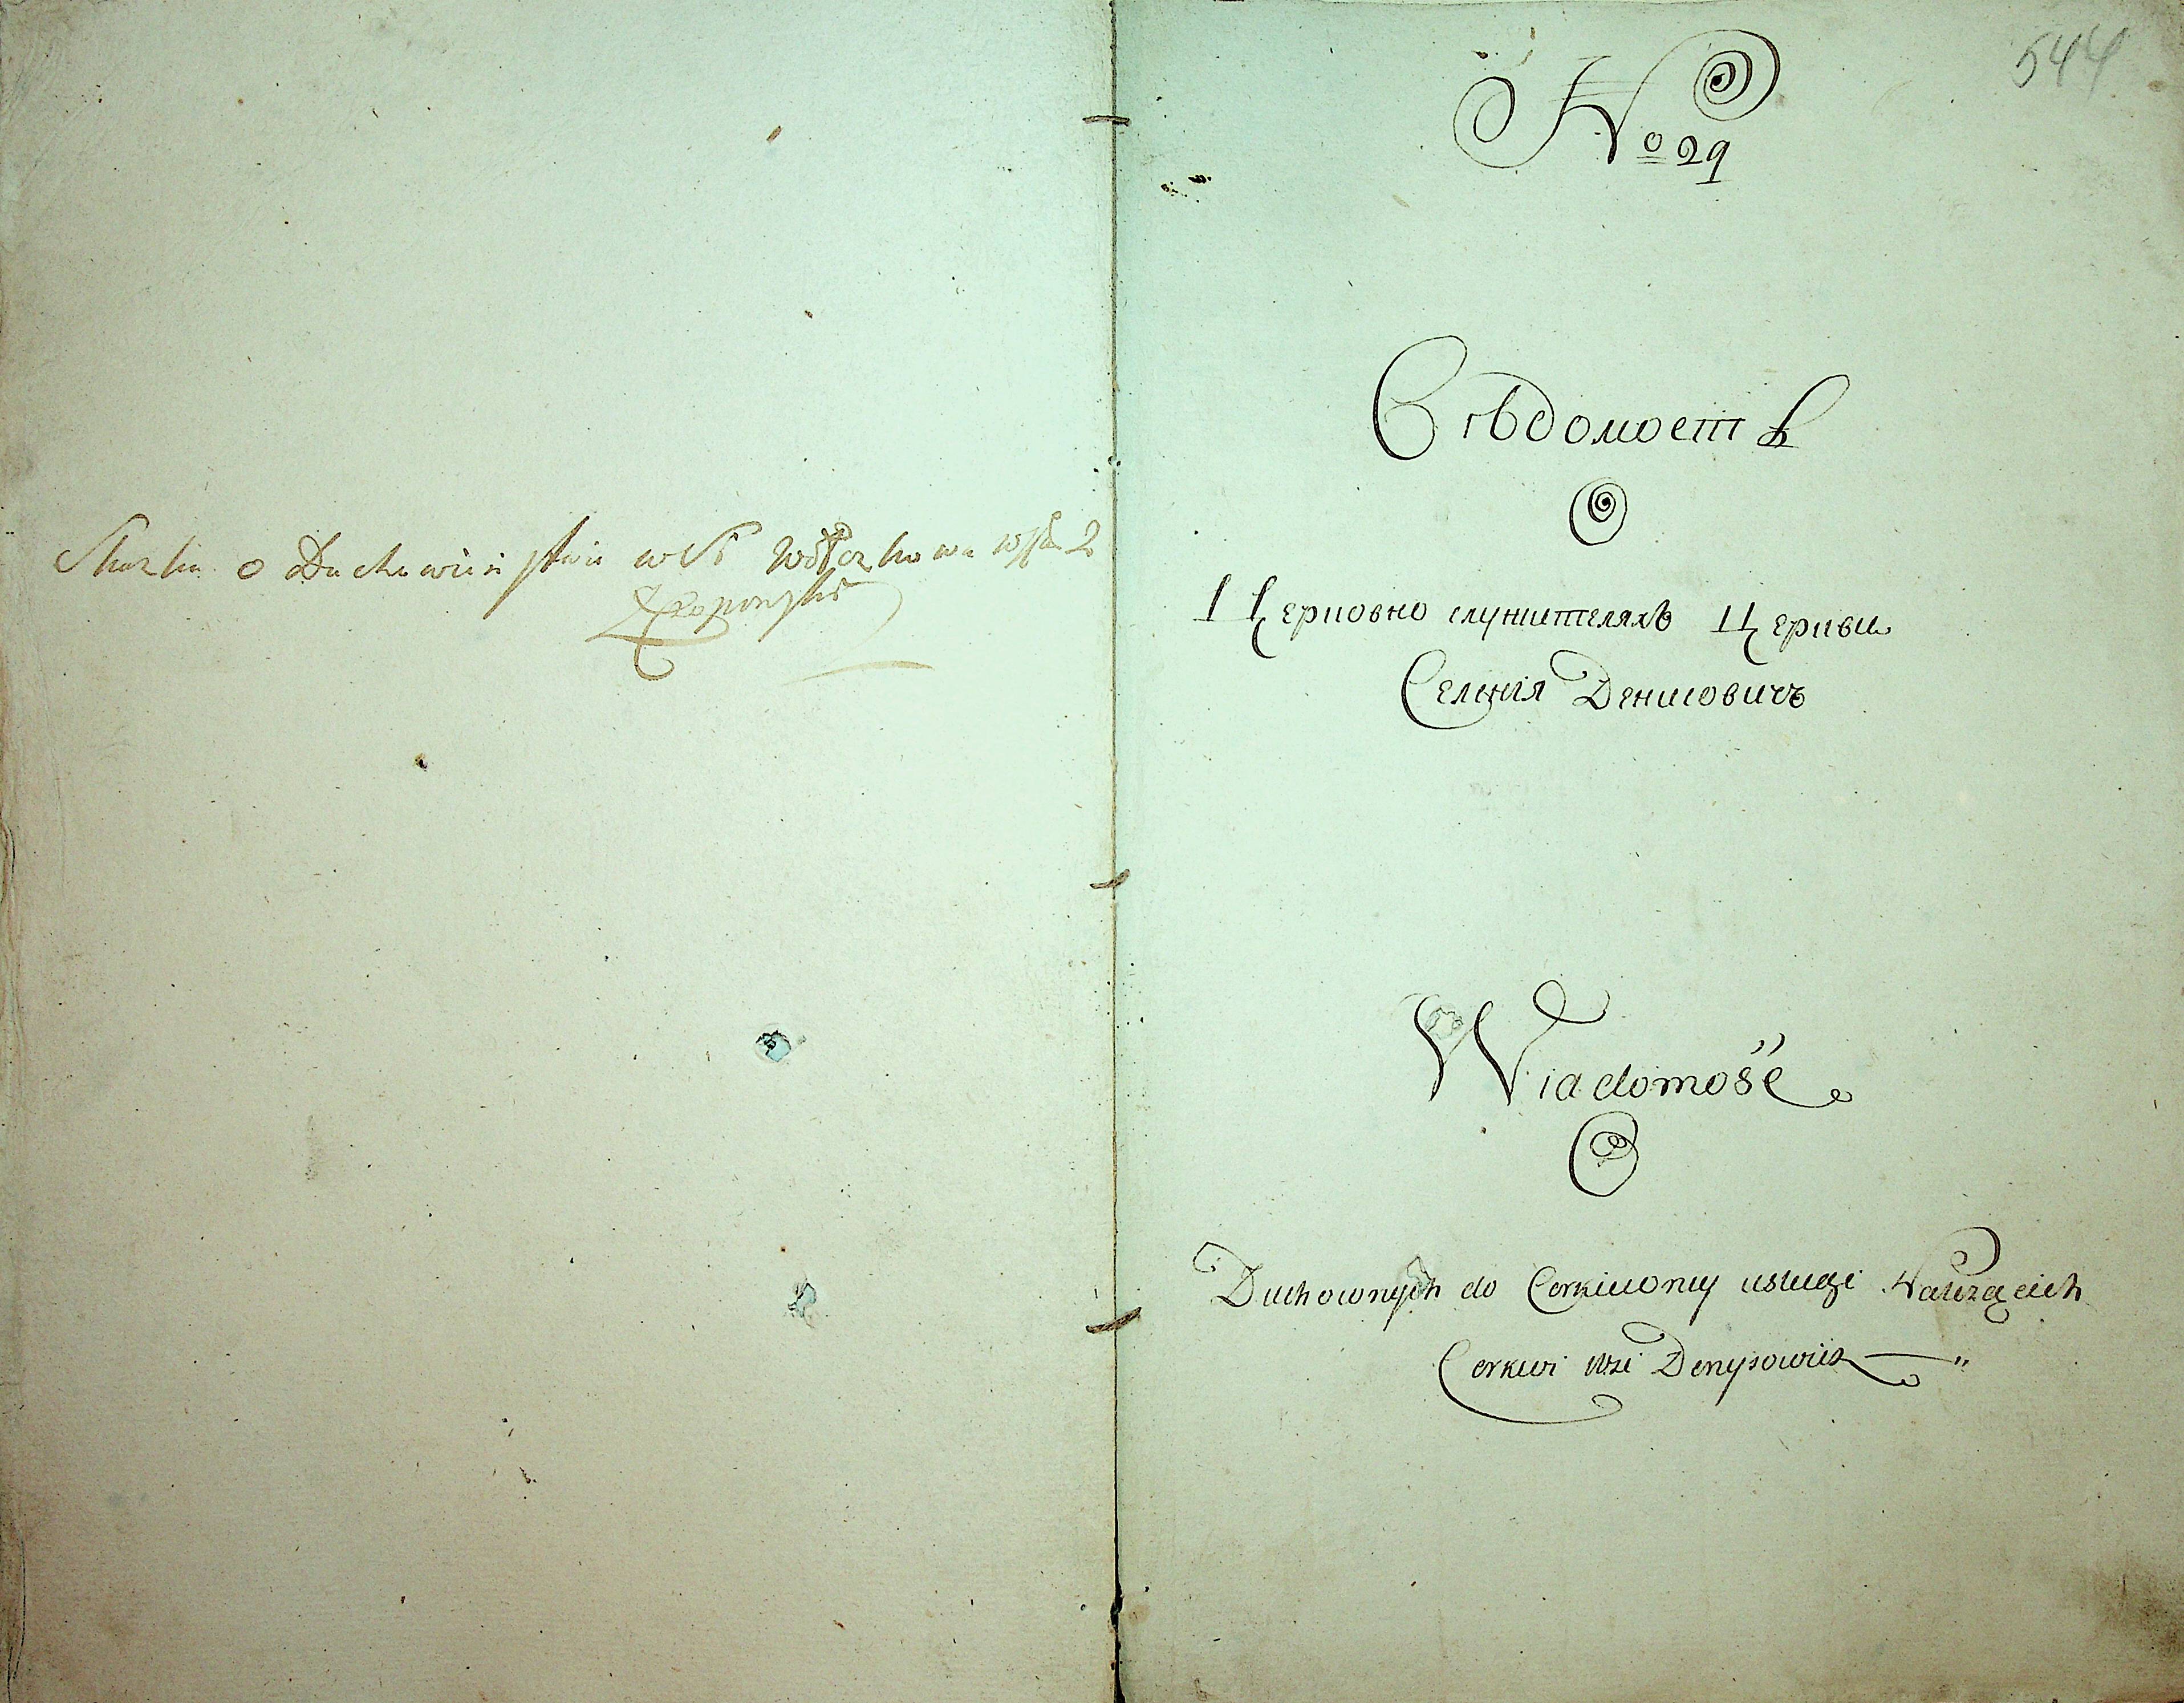 o Duchowieństwie
544
No 29
Вѣдомость
О
Церковно служителяхъ Церкви
Селенія Денисовичъ
Wiadomość
O
Duchownych do Cerkiewney usługi Należących
Cerkwi wsi Denysowicz